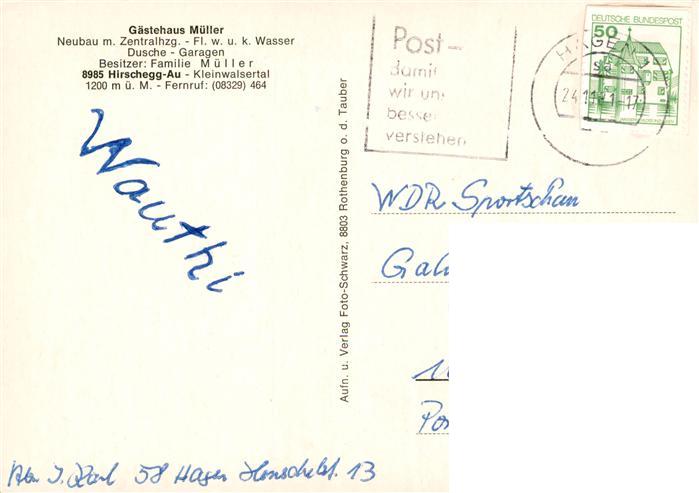 Gästehaus Müller
Neubau m. Zentralhzg. - Fl. w. u. k. Wasser
Dusche - Garagen
Besitzer: Familie Müller
8985 Hirschegg-Au - Kleinwalsertal
1200 m ü. M. - Fernruf: (08329) 464
Wauthi
Aufn. u. Verlag Foto-Schwarz, 8803 Rothenburg o. d. Tauber
Post-
damit
wir uns
besser
verstehen
DEUTSCHE BUNDESPOST
50
HAGEN
WDR Sportschau
Abs J. Karl 58 Hagen Henschelst. 13